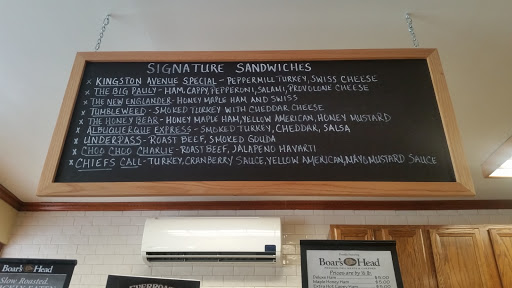 SIGNATURE SANDWICHES
x KINGSTON AVENUE SPECIAL - PEPPERMILL TURKEY, SWISS CHEESE
x THE BIG PAULY - HAM, CAPPY, PEPPERONI, SALAMI, PROVOLONE CHEESE
x THE NEW ENGLANDER - HONEY MAPLE HAM AND SWISS
x TUMBLEWEED - SMOKED TURKEY WITH CHEDDAR CHEESE
x THE HONEY BEAR - HONEY MAPLE HAM, YELLOW AMERICAN, HONEY MUSTARD
x ALBUQUERQUE EXPRESS - SMOKED TURKEY, CHEDDAR, SALSA
x UNDERPASS - ROAST BEEF, SMOKED GOUDA
x CHOO CHOO CHARLIE - ROAST BEEF, JALAPENO HAVARTI
x CHIEFS CALL - TURKEY, CRANBERRY SAUCE, YELLOW AMERICAN, MAYO MUSTARD SAUCE
Boar's Head
Slow Roasted
Boar's Head
Deluxe Ham
Maple Honey Ham